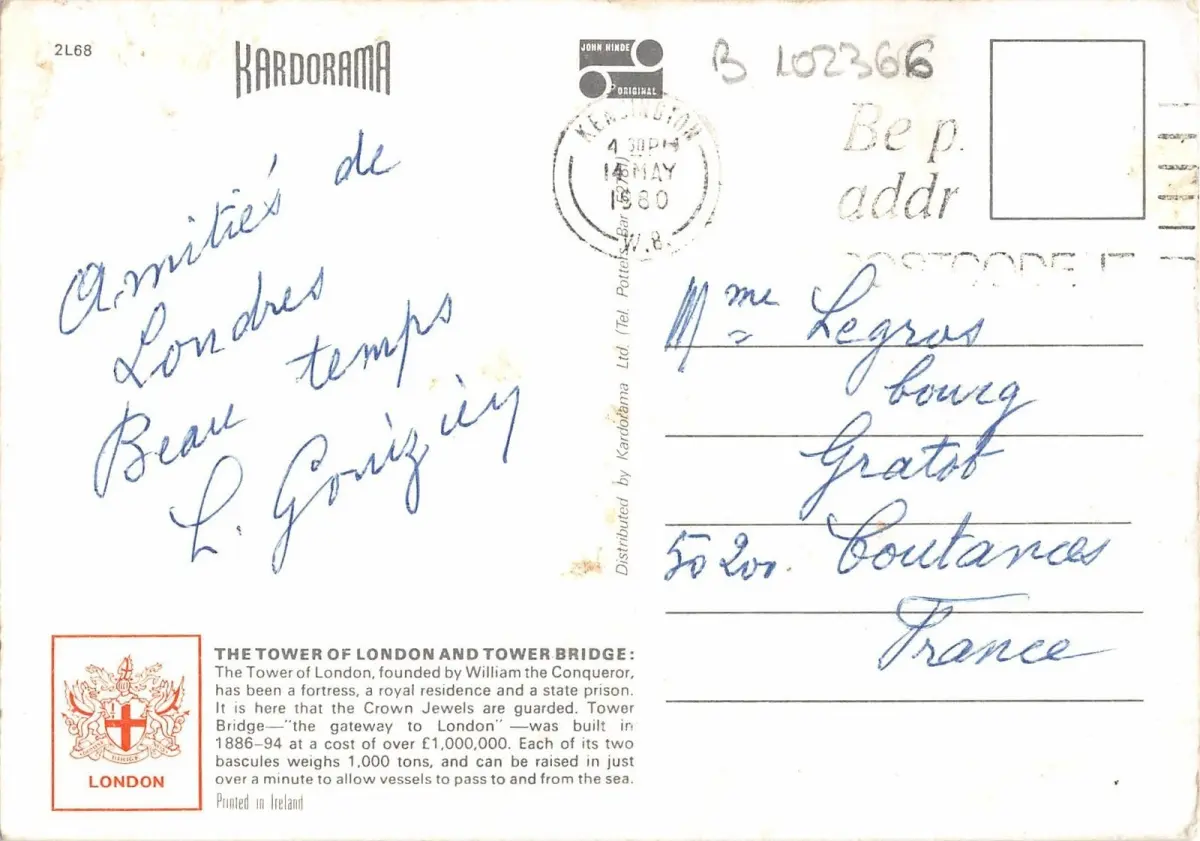 2L68
KARDORAMA
JOHN HINDE
ORIGINAL
B 102366
KENSINGTON
4 30PM
14 MAY
1980
W.8.
Be p.
addr
POSTCODE IT
Amitiés de
Londres
Beau temps
Mme Legros
bourg
Gratot
50200. Coutances
France
Distributed by Kardorama Ltd. (Tel. Potters Bar 52781)
LONDON
THE TOWER OF LONDON AND TOWER BRIDGE:
The Tower of London, founded by William the Conqueror,
has been a fortress, a royal residence and a state prison.
It is here that the Crown Jewels are guarded. Tower
Bridge—"the gateway to London"—was built in
1886–94 at a cost of over £1,000,000. Each of its two
bascules weighs 1,000 tons, and can be raised in just
over a minute to allow vessels to pass to and from the sea.
Printed in Ireland